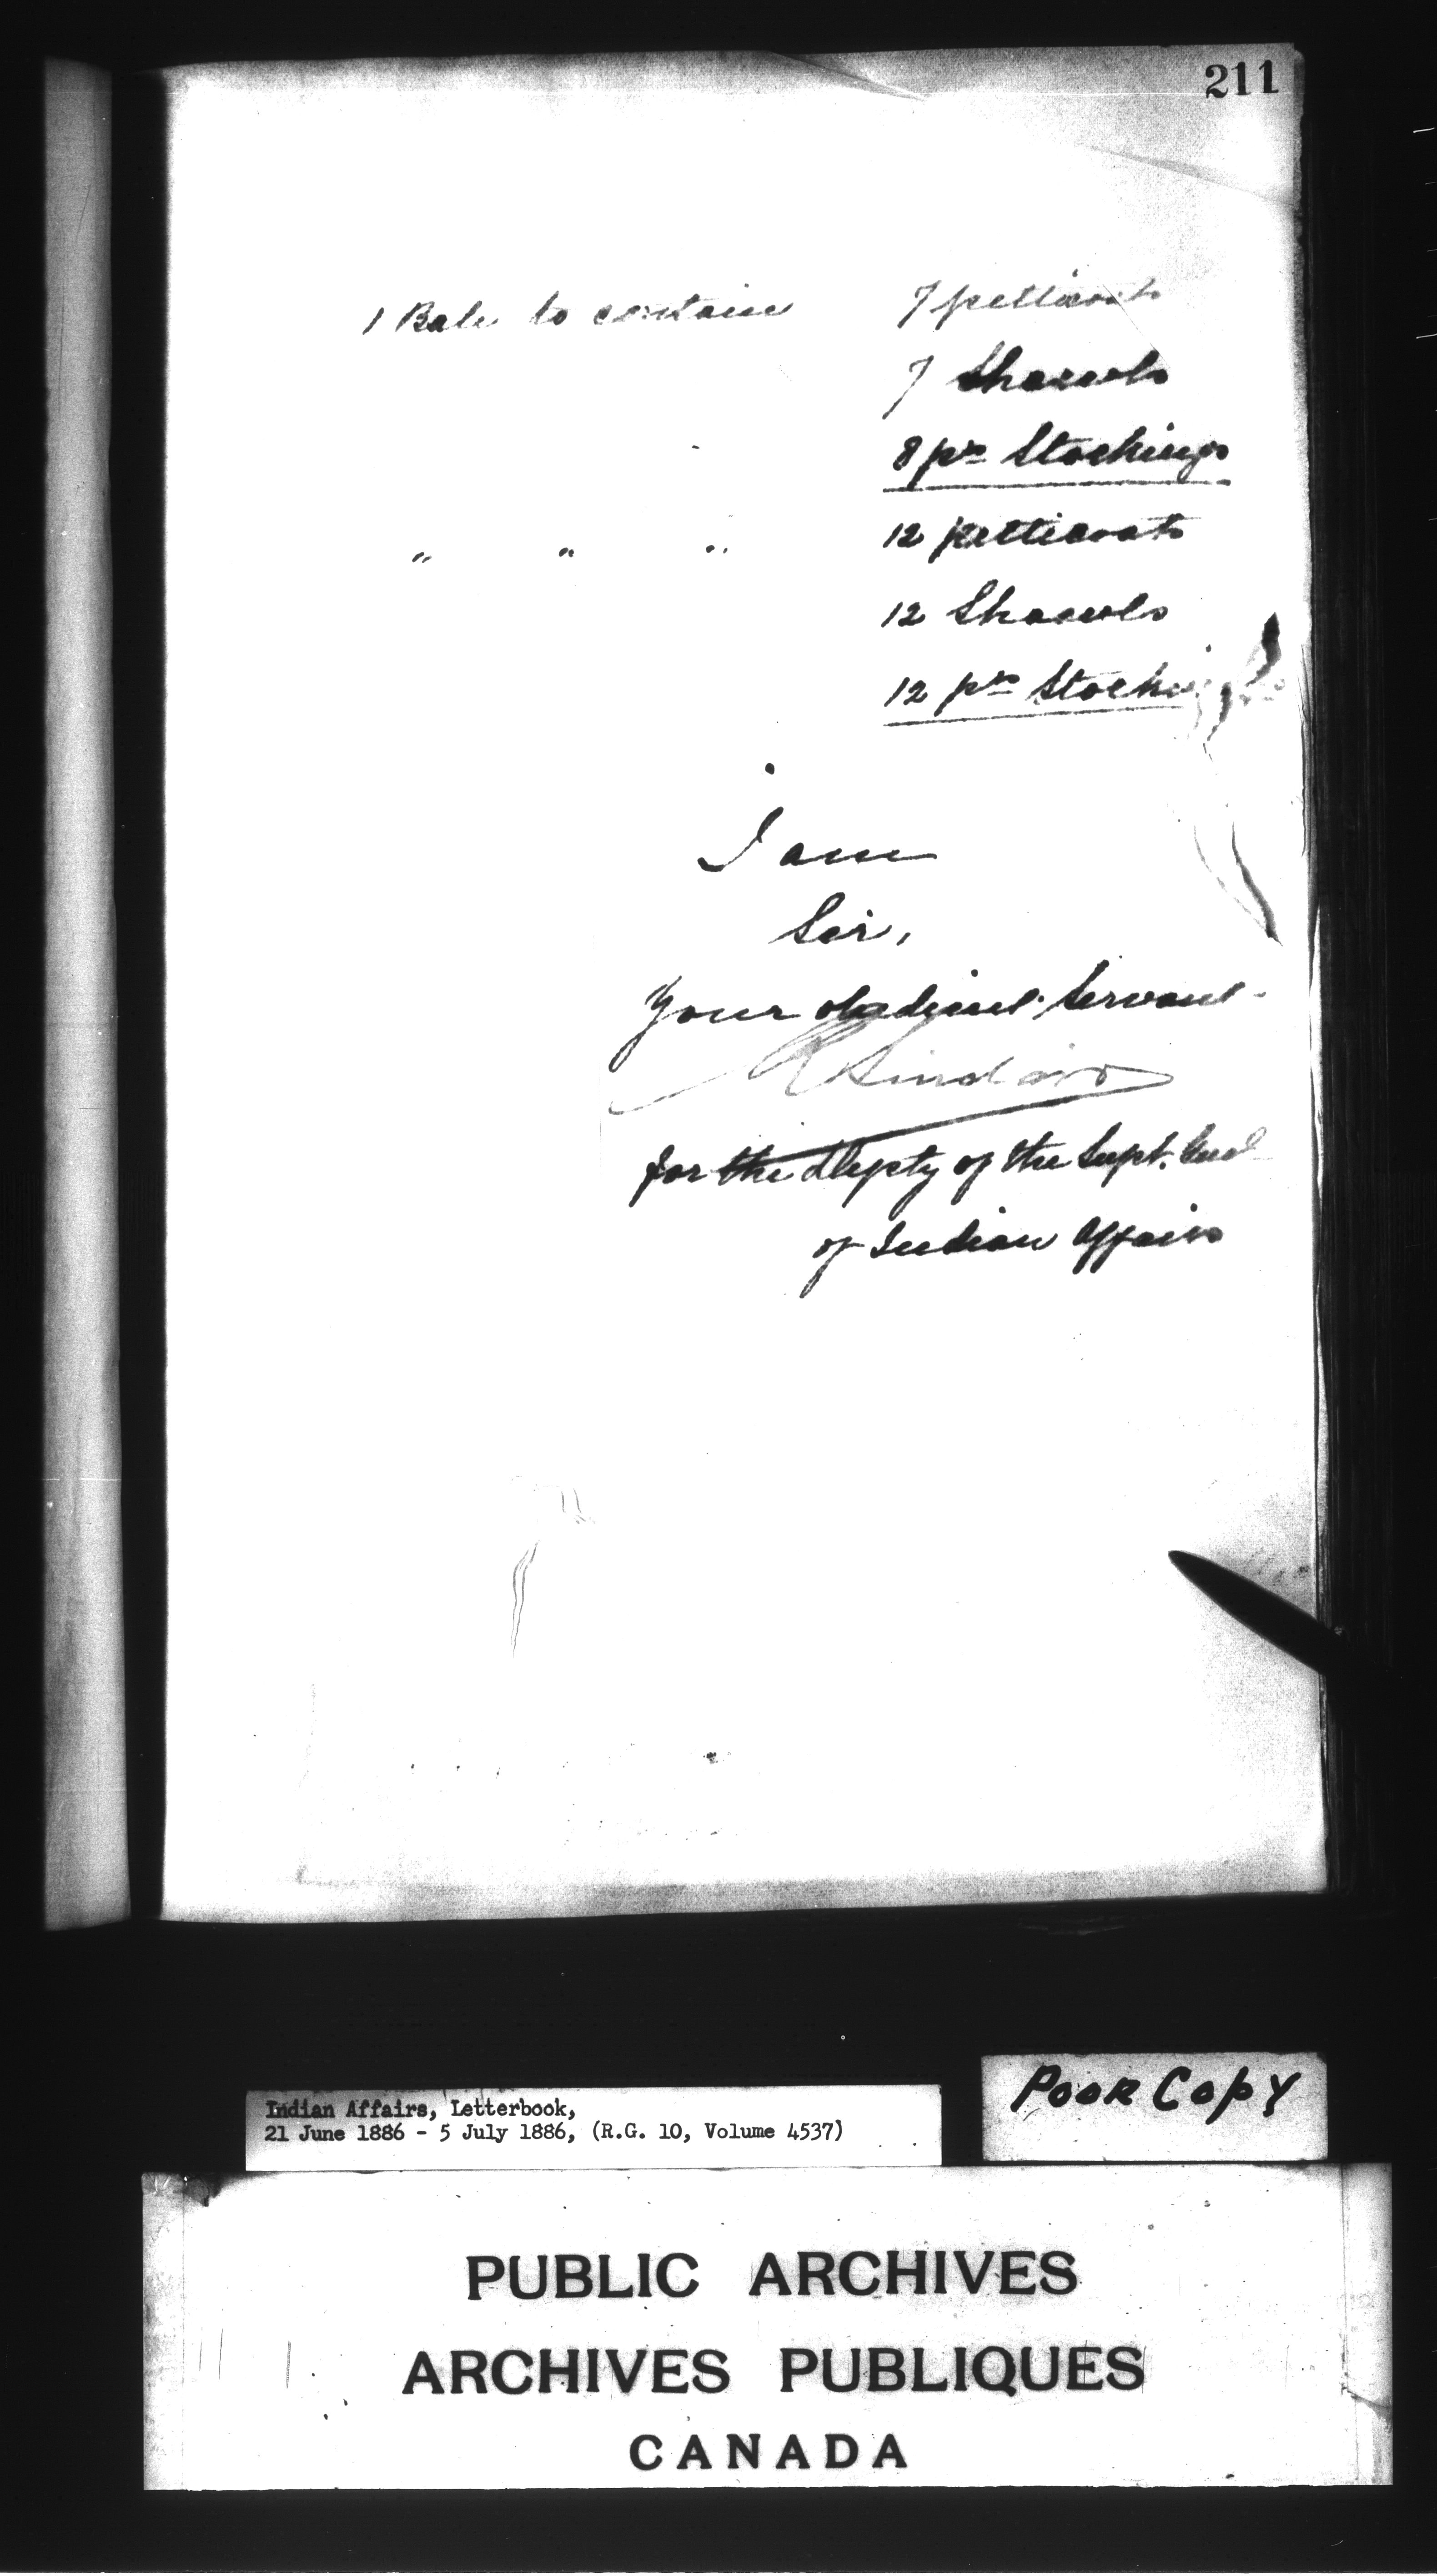 211
1 Bale to contain 7 petticoats
7 Shawls
8 prs Stockings
" " " 12 petticoats
12 Shawls
12 prs Stockings
I am
Sir,
Your obedient Servant
R Sinclair
for the Depty of the Supt. Genl
of Indian Affairs
Poor Copy
Indian Affairs, Letterbook,
21 June 1886 - 5 July 1886, (R.G. 10, Volume 4537)
PUBLIC ARCHIVES
ARCHIVES PUBLIQUES
CANADA